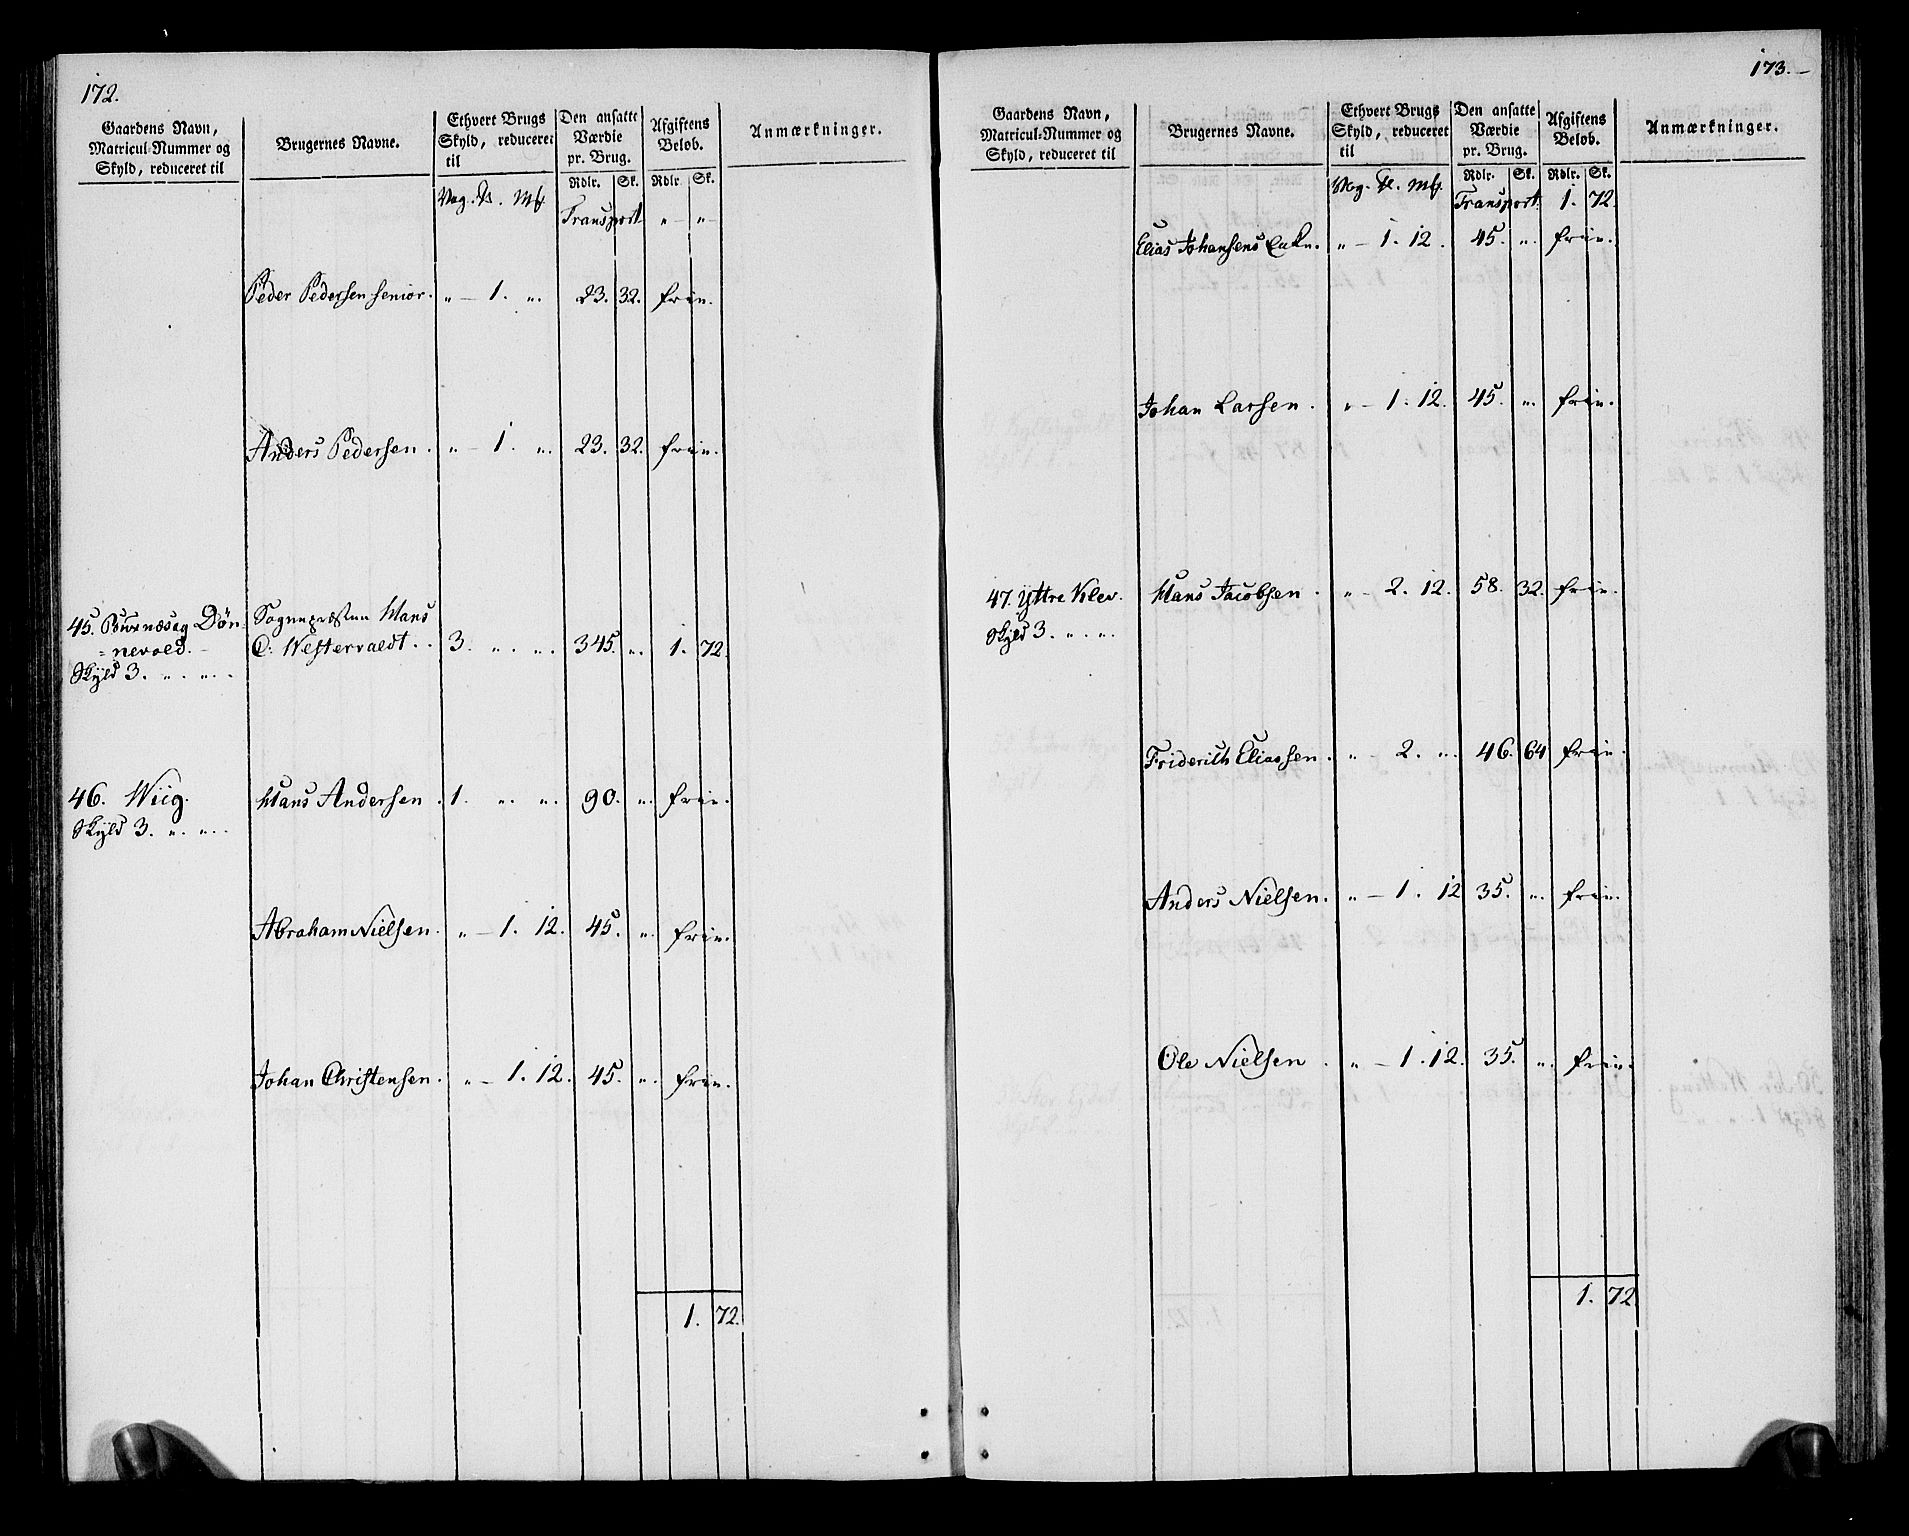 172.
Gaardens Navn, Matricul-Nummer og Skyld, reduceret til
Brugernes Navne.
Ethvert Brugs Skyld, reduceret til
Den ansatte Værdie pr. Brug.
Afgiftens Beløb.
Anmærkninger.
Rdlr. Sk. Rdlr. Sk.
Vog. ℔. Mk
Transport „ — „
Peder Pedersen senior. „ — 1. „. 23. 32. frie.
Anders Pedersen. „ — 1. „. 23. 32. frie.
45. Dønnevold. Skyld 3. „. „. Sognepræsten Hans C: Westervaldt. 3. „. „. 345. „. 1. 72.
46. Wiig. Skyld 3. „. „. Hans Andersen. 1. „. „. 90. „. frie.
Abraham Nielsen. „ — 1. 12. 45. „. frie.
Johan Christensen. „ — 1. 12. 45. „. frie.
1. 72.
173.
Gaardens Navn, Matricul-Nummer og Skyld, reduceret til
Brugernes Navne.
Ethvert Brugs Skyld, reduceret til
Den ansatte Værdie pr. Brug.
Afgiftens Beløb.
Anmærkninger.
Rdlr. Sk. Rdlr. Sk.
Vog. ℔. Mk
Transport 1. 72.
Elias Johansens Enke. „ — 1. 12. 45. „. frie.
Johan Larsen. „ — 1. 12. 45. „. frie.
47. Yttre Klev. Skyld 3. „. „. Hans Jacobsen. „ — 2. 12. 58. 32. frie.
Friderich Eliassen. „ — 2. „. 46. 64 frie.
Anders Nielsen. „ — 1. 12 35. „. frie.
Ole Nielsen. „ — 1. 12. 35. „. frie.
1. 72